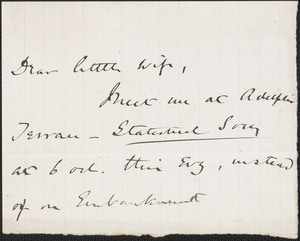 Dear little wife,
Meet me at Adelphi
Terrace - Statistical Socy
at 6 ocl. this Evg, instead
of on Embankment